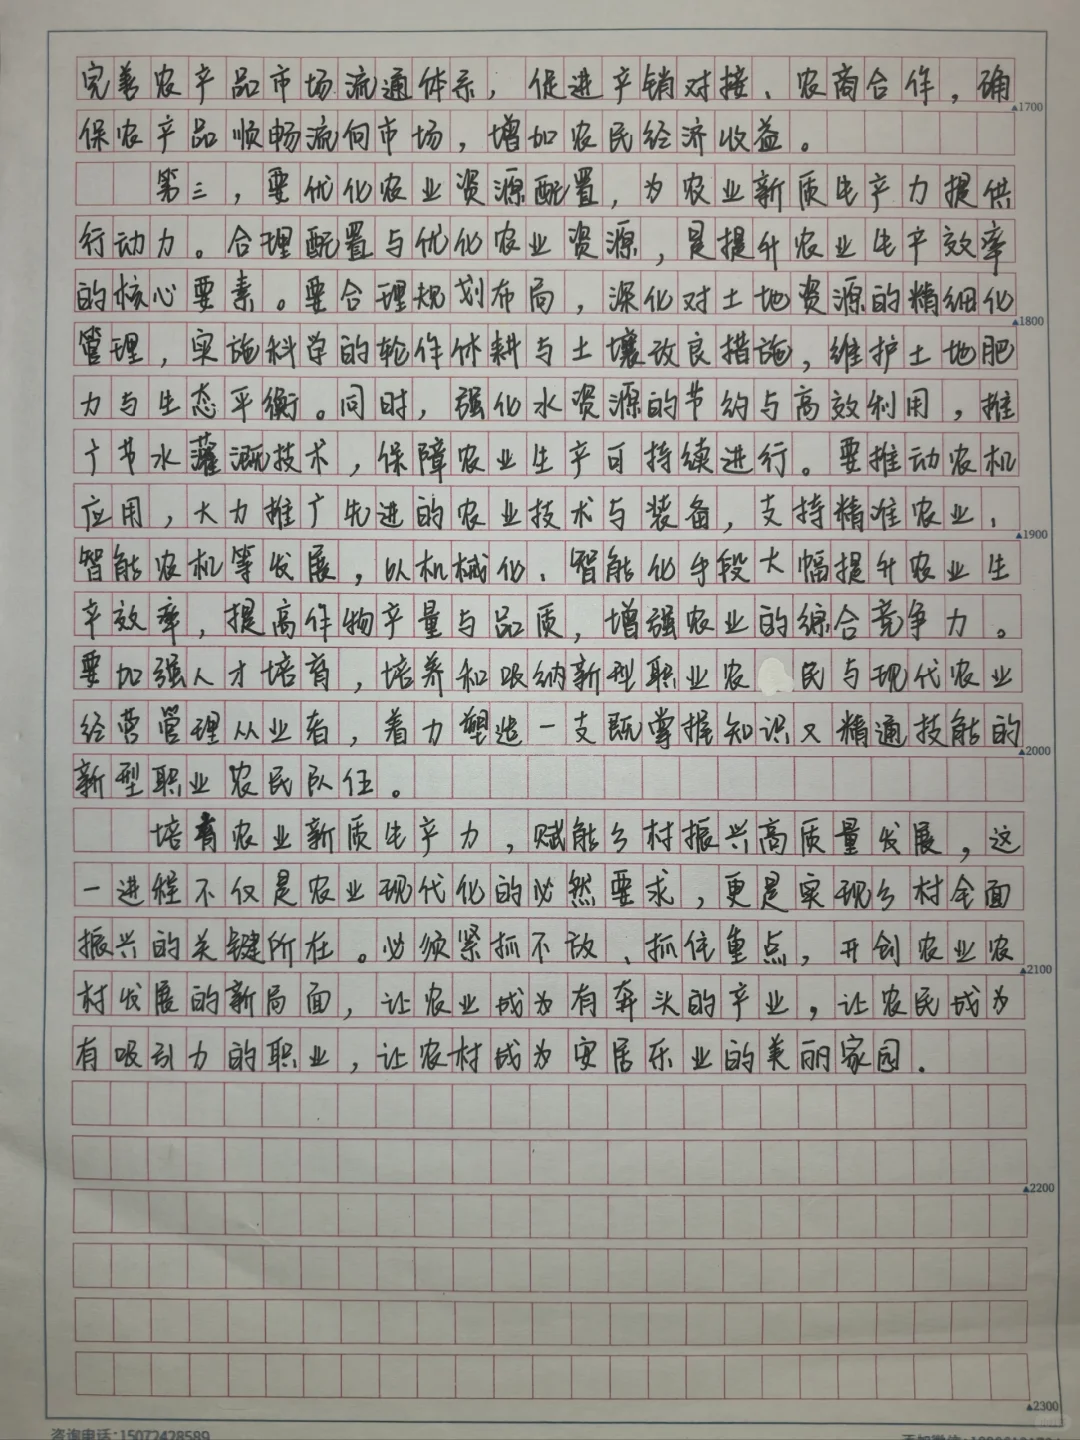 完善农产品市场流通体系，促进产销对接、农商合作，确
▲1700
保农产品顺畅流向市场，增加农民经济收益。
第三，要优化农业资源配置，为农业新质生产力提供
行动力。合理配置与优化农业资源，是提升农业生产效率
的核心要素。要合理规划布局，深化对土地资源的精细化
▲1800
管理，实施科学的轮作休耕与土壤改良措施，维护土地肥
力与生态平衡。同时，强化水资源的节约与高效利用，推
广节水灌溉技术，保障农业生产可持续进行。要推动农机
应用，大力推广先进的农业技术与装备，支持精准农业、
▲1900
智能农机等发展，以机械化、智能化手段大幅提升农业生
产效率，提高作物产量与品质，增强农业的综合竞争力。
要加强人才培育，培养和吸纳新型职业农民与现代农业
经营管理从业者，着力塑造一支既掌握知识又精通技能的
▲2000
新型职业农民队伍。
培育农业新质生产力，赋能乡村振兴高质量发展，这
一进程不仅是农业现代化的必然要求，更是实现乡村全面
振兴的关键所在。必须紧抓不放、抓住重点，开创农业农
▲2100
村发展的新局面，让农业成为有奔头的产业，让农民成为
有吸引力的职业，让农村成为安居乐业的美丽家园.
▲2200
▲2300
咨询电话:15072428589